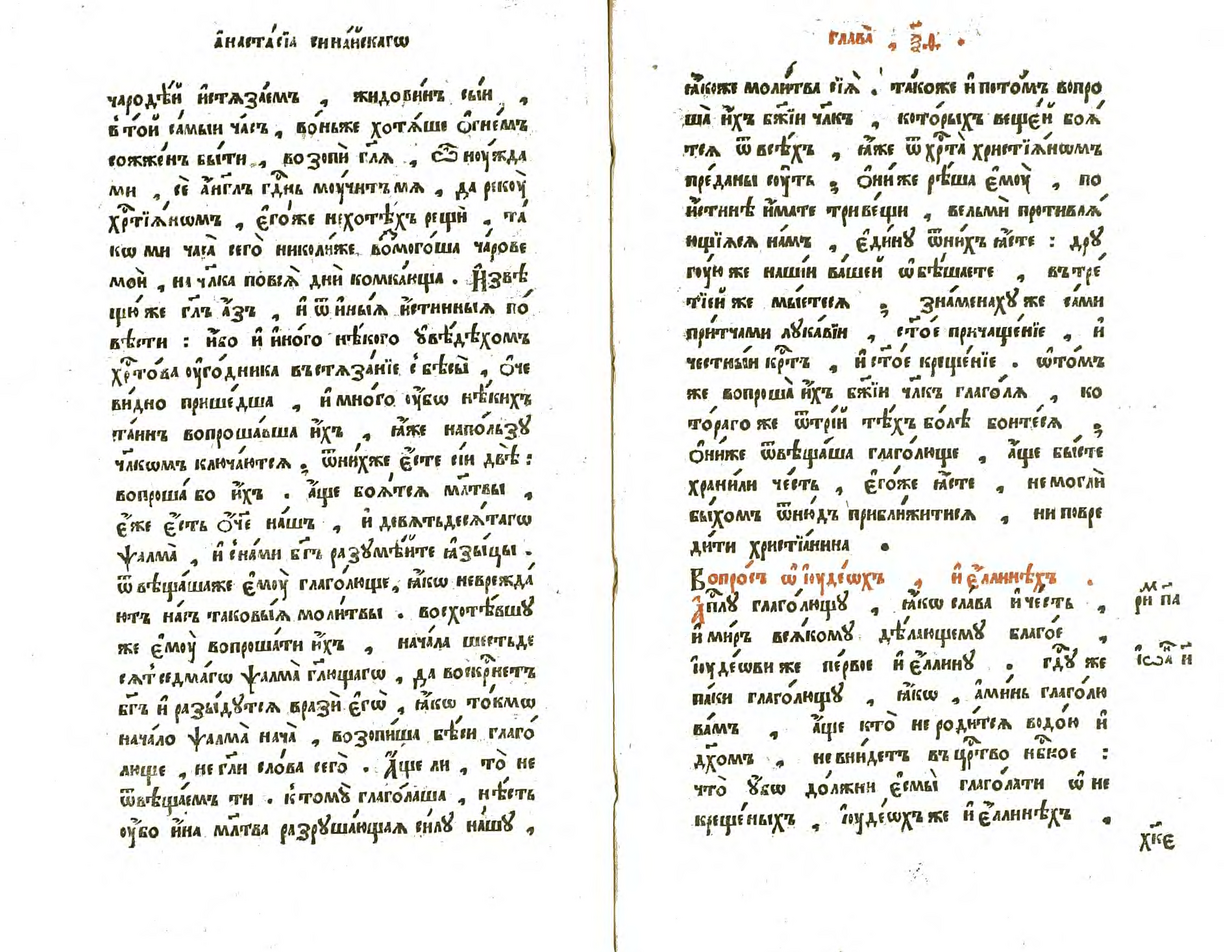 а҆наста́сїа сина́йскагѡ
чародѣ́й и҆стѧза́емъ , жидови́нъ сы́и ,
в то́й са́мыи ча́съ , во́ньже хотѧ́ше ѻ҆гне́мъ
сожже́нъ бы́ти , возопѝ гл҃ѧ , ѿ ноу́жда
ми , сѐ а҆́нг҃лъ гд҇нь моу́читъ мѧ , да рекоу̀
хр҇тїѧ́нѡмъ , є҆го́же нехотѣ́хъ рещѝ , та́
кѡ ми часа̀ сего̀ николи́же возмого́ша ча́рове
моѝ , на чл҃ка повсѧ̀ днѝ комка́юща . И҆звѣ
щю́ же гл҃ъ а҆́зъ , и҆ ѿ и҆ны́ѧ и҆́стинныѧ по́
вѣсти : и҆́бо и҆ и҆но́го нѣ́кого ᲂувѣ́дѣхомъ
хр҇то́ва ᲂуго́дника въстѧза́нїе с бѣ́сы , ѻ҆че
ви́дно прише́дша , и҆ мно́го ᲂу҆́бѡ нѣ́кихъ
та́инъ вопроша́вша и҆́хъ , ꙗ҆́же напо́льзꙋ
чл҃кѡмъ ключа́ютсѧ , ѿни́хже є҆́сте сїѝ двѣ̀ :
вопроша́ бо и҆́хъ . а҆́ще боѧ́тсѧ мл҃твы ,
є҆́же є҆́сть ѻ҆́ч҃е на́шъ , и҆ девѧтьдесѧ́тагѡ
ѱалма̀ , и҆ с на́ми бг҃ъ разꙋмѣ́ите ꙗ҆зы́цы .
ѿвѣща́ша же є҆моу̀ глаго́люще , ꙗ҆́кѡ неврежда́
ютъ на́съ таковы́ѧ моли́твы . восхотѣ́вшꙋ
же є҆моу̀ вопроша́ти и҆́хъ , нача́ла шестьде
сѧ́т седма́гѡ ѱалма̀ гл҃ющагѡ , да воскр҇нетъ
бг҃ъ и҆ разы́дꙋтсѧ вразѝ є҆гѡ̀ , ꙗ҆́кѡ то́кмѡ
нача́ло ѱалма̀ нача̀ , возопи́ша бѣ́си глаго́
люще , не гл҃и сло́ва сего̀ . А҆́ще ли , то̀ не
ѿвѣща́емъ ти . к томꙋ̀ глаго́лаша , нѣ́сть
ᲂу҆́бо и҆́на мл҃тва разрꙋша́ющаѧ си́лꙋ на́шꙋ ,
глава̀ , ѯ҃ѳ .
ꙗ҆́коже моли́тва сїѧ̀ . та́коже и҆ пото́мъ вопро
ша̀ и҆́хъ бж҃їи чл҃къ , кото́рыхъ веще́й боѧ́
тсѧ ѿ всѣ́хъ , ꙗ҆́же ѿ хр҇та̀ христїѧ́нѡмъ
пре́даны соу́ть ; ѻ҆ни́же рѣ́ша є҆моу̀ , по
и҆́стинѣ и҆́мате трѝ ве́щи , вельмѝ противлѧ́
ющїѧсѧ на́мъ , є҆ди́нꙋ ѿни́хъ ꙗ҆́сте : дрꙋ
гоу́ю же наши́и ва́шей ѡ҆бѣ́шаете , въ тре́
тїей же мы́етесѧ ; знаменахꙋ́ же са́ми
при́тчами лꙋка́вїи , ст҃о́е причаще́нїе , и҆
честны́и кр҇тъ , и҆ ст҃о́е креще́нїе . ѡ҆то́мъ
же вопроша̀ и҆́хъ бж҃їи чл҃къ глаго́лѧ , ко
то́раго же ѿтрі́й тѣ́хъ бо́лѣ боите́сѧ ;
ѻ҆ни́же ѿвѣща́ша глаго́люще , а҆́ще бы́сте
храни́ли че́сть , є҆го́же ꙗ҆́сте , не моглѝ
бы́хомъ ѿню́дъ прибли́житисѧ , ни повре
ди́ти христїа́нина .
Вопро́съ ѡ҆ і҆ꙋде́ѡхъ , и҆ є҆́ллинѣхъ .
А҆пл҇ꙋ глаго́лющꙋ , ꙗ҆́кѡ сла́ва и҆ че́сть ,
и҆ ми́ръ всѧ́комꙋ дѣ́лающемꙋ благо́е ,
і҆ꙋде́ѡви же пе́рвое и҆ є҆́ллинꙋ . гд҇ꙋ же
па́ки глаго́лющꙋ , ꙗ҆́кѡ , а҆ми́нь глаго́лю
ва́мъ , а҆́ще кто̀ не роди́тсѧ водо́ю и҆
дх҃омъ , не вни́детъ въ цр҇тво нб҇ное :
что̀ ᲂу҆́бѡ до́лжни є҆смы̀ глаго́лати ѡ҆ не
креще́ныхъ , і҆ꙋде́ѡхъ же и҆ є҆́ллинѣхъ .